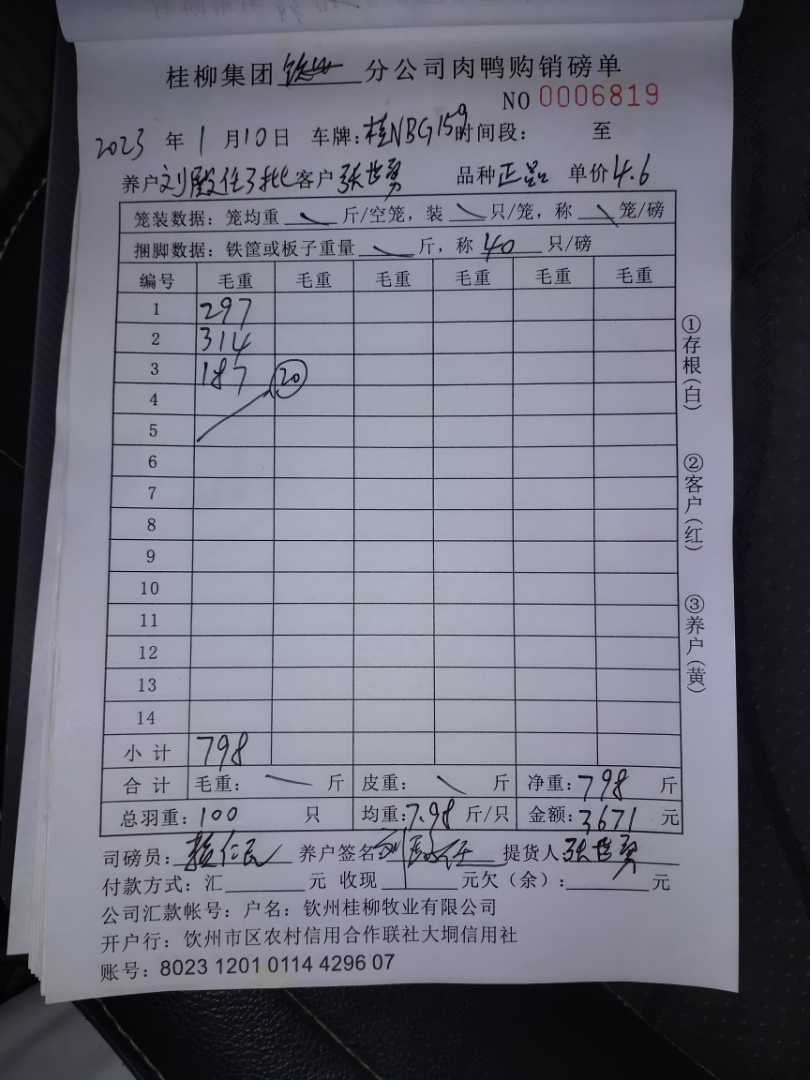 桂柳集团 钦州 分公司肉鸭购销磅单
NO 0006819
2023 年 1 月 10 日 车牌：桂NBG159 时间段： 至
养户 刘殿任3批 客户 张世勇 品种 正品 单价 4.6
笼装数据：笼均重 斤/空笼，装 只/笼，称 笼/磅
捆脚数据：铁筐或板子重量 斤，称 40 只/磅
编号 毛重 毛重 毛重 毛重 毛重 毛重
1 297
2 314
3 187 20
4
5
6
7
8
9
10
11
12
13
14
小计 798
合计 毛重： 斤 皮重： 斤 净重：798 斤
总羽重：100 只 均重：7.98 斤/只 金额：3671 元
司磅员： 养户签名 提货人 张世勇
付款方式：汇 元 收现 元欠（余）： 元
公司汇款帐号：户名：钦州桂柳牧业有限公司
开户行：钦州市区农村信用合作联社大垌信用社
账号：8023 1201 0114 4296 07
①存根（白）
②客户（红）
③养户（黄）